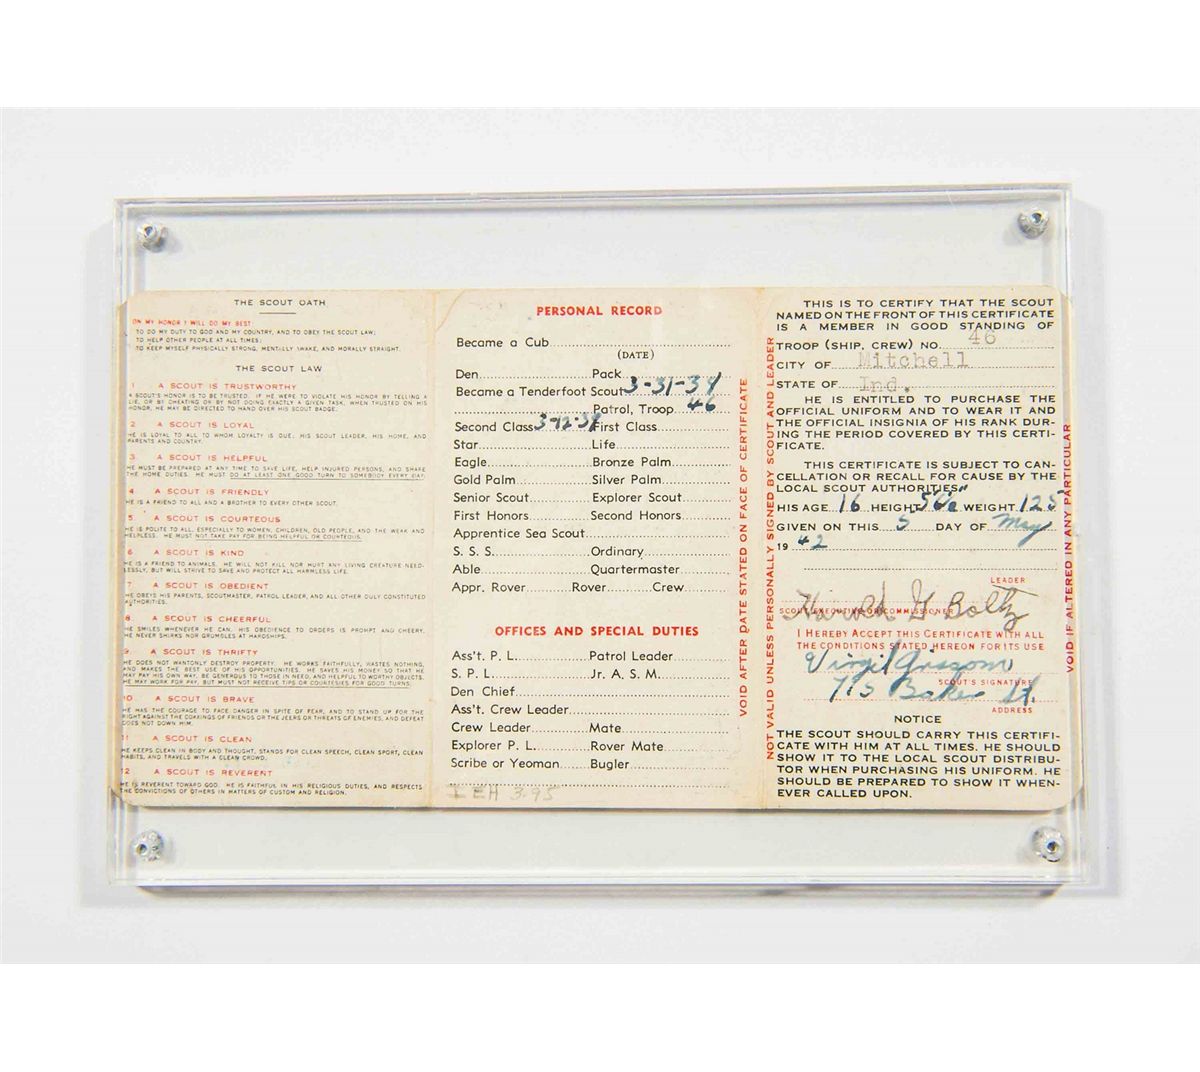 THE SCOUT OATH
ON MY HONOR I WILL DO MY BEST:
TO DO MY DUTY TO GOD AND MY COUNTRY, AND TO OBEY THE SCOUT LAW;
TO HELP OTHER PEOPLE AT ALL TIMES;
TO KEEP MYSELF PHYSICALLY STRONG, MENTALLY AWAKE, AND MORALLY STRAIGHT.
THE SCOUT LAW
1 A SCOUT IS TRUSTWORTHY
A SCOUT'S HONOR IS TO BE TRUSTED. IF HE WERE TO VIOLATE HIS HONOR BY TELLING A
LIE, OR BY CHEATING OR BY NOT DOING EXACTLY A GIVEN TASK, WHEN TRUSTED ON HIS
HONOR, HE MAY BE DIRECTED TO HAND OVER HIS SCOUT BADGE.
2 A SCOUT IS LOYAL
HE IS LOYAL TO ALL TO WHOM LOYALTY IS DUE: HIS SCOUT LEADER, HIS HOME, AND
PARENTS AND COUNTRY.
3 A SCOUT IS HELPFUL
HE MUST BE PREPARED AT ANY TIME TO SAVE LIFE, HELP INJURED PERSONS, AND SHARE
THE HOME DUTIES. HE MUST DO AT LEAST ONE GOOD TURN TO SOMEBODY EVERY DAY.
4 A SCOUT IS FRIENDLY
HE IS A FRIEND TO ALL AND A BROTHER TO EVERY OTHER SCOUT.
5 A SCOUT IS COURTEOUS
HE IS POLITE TO ALL, ESPECIALLY TO WOMEN, CHILDREN, OLD PEOPLE, AND THE WEAK AND
HELPLESS. HE MUST NOT TAKE PAY FOR BEING HELPFUL OR COURTEOUS.
6 A SCOUT IS KIND
HE IS A FRIEND TO ANIMALS. HE WILL NOT KILL NOR HURT ANY LIVING CREATURE NEED-
LESSLY, BUT WILL STRIVE TO SAVE AND PROTECT ALL HARMLESS LIFE.
7 A SCOUT IS OBEDIENT
HE OBEYS HIS PARENTS, SCOUTMASTER, PATROL LEADER, AND ALL OTHER DULY CONSTITUTED
AUTHORITIES.
8 A SCOUT IS CHEERFUL
HE SMILES WHENEVER HE CAN. HIS OBEDIENCE TO ORDERS IS PROMPT AND CHEERY.
HE NEVER SHIRKS NOR GRUMBLES AT HARDSHIPS.
9 A SCOUT IS THRIFTY
HE DOES NOT WANTONLY DESTROY PROPERTY. HE WORKS FAITHFULLY, WASTES NOTHING,
AND MAKES THE BEST USE OF HIS OPPORTUNITIES. HE SAVES HIS MONEY SO THAT HE
MAY PAY HIS OWN WAY, BE GENEROUS TO THOSE IN NEED, AND HELPFUL TO WORTHY OBJECTS.
HE MAY WORK FOR PAY, BUT MUST NOT RECEIVE TIPS OR COURTESIES FOR GOOD TURNS.
10 A SCOUT IS BRAVE
HE HAS THE COURAGE TO FACE DANGER IN SPITE OF FEAR, AND TO STAND UP FOR THE
RIGHT AGAINST THE COAXINGS OF FRIENDS OR THE JEERS OR THREATS OF ENEMIES, AND DEFEAT
DOES NOT DOWN HIM.
11 A SCOUT IS CLEAN
HE KEEPS CLEAN IN BODY AND THOUGHT, STANDS FOR CLEAN SPEECH, CLEAN SPORT, CLEAN
HABITS, AND TRAVELS WITH A CLEAN CROWD.
12 A SCOUT IS REVERENT
HE IS REVERENT TOWARD GOD. HE IS FAITHFUL IN HIS RELIGIOUS DUTIES, AND RESPECTS
THE CONVICTIONS OF OTHERS IN MATTERS OF CUSTOM AND RELIGION.
PERSONAL RECORD
Became a Cub
(DATE)
Den Pack
Became a Tenderfoot Scout 3-31-39
Patrol, Troop 46
Second Class First Class
Star Life
Eagle Bronze Palm
Gold Palm Silver Palm
Senior Scout Explorer Scout
First Honors Second Honors
Apprentice Sea Scout
S. S. S. Ordinary
Able Quartermaster
Appr. Rover Rover Crew
OFFICES AND SPECIAL DUTIES
Ass't. P. L. Patrol Leader
S. P. L. Jr. A. S. M.
Den Chief
Ass't. Crew Leader
Crew Leader Mate
Explorer P. L. Rover Mate
Scribe or Yeoman Bugler
LEH 3.95
VOID AFTER DATE STATED ON FACE OF CERTIFICATE
NOT VALID UNLESS PERSONALLY SIGNED BY SCOUT AND LEADER
THIS IS TO CERTIFY THAT THE SCOUT
NAMED ON THE FRONT OF THIS CERTIFICATE
IS A MEMBER IN GOOD STANDING OF
TROOP (SHIP, CREW) NO. 46
CITY OF Mitchell
STATE OF Ind.
HE IS ENTITLED TO PURCHASE THE
OFFICIAL UNIFORM AND TO WEAR IT AND
THE OFFICIAL INSIGNIA OF HIS RANK DUR-
ING THE PERIOD COVERED BY THIS CERTI-
FICATE.
THIS CERTIFICATE IS SUBJECT TO CAN-
CELLATION OR RECALL FOR CAUSE BY THE
LOCAL SCOUT AUTHORITIES.
HIS AGE 16 HEIGHT WEIGHT 125
GIVEN ON THIS 5 DAY OF May
19 42
LEADER
Harold G Boltz
SCOUT EXECUTIVE OR COMMISSIONER
I HEREBY ACCEPT THIS CERTIFICATE WITH ALL
THE CONDITIONS STATED HEREON FOR ITS USE
Virgil Grissom
SCOUT'S SIGNATURE
715 Baker St.
ADDRESS
NOTICE
THE SCOUT SHOULD CARRY THIS CERTIFI-
CATE WITH HIM AT ALL TIMES. HE SHOULD
SHOW IT TO THE LOCAL SCOUT DISTRIBU-
TOR WHEN PURCHASING HIS UNIFORM. HE
SHOULD BE PREPARED TO SHOW IT WHEN-
EVER CALLED UPON.
VOID IF ALTERED IN ANY PARTICULAR